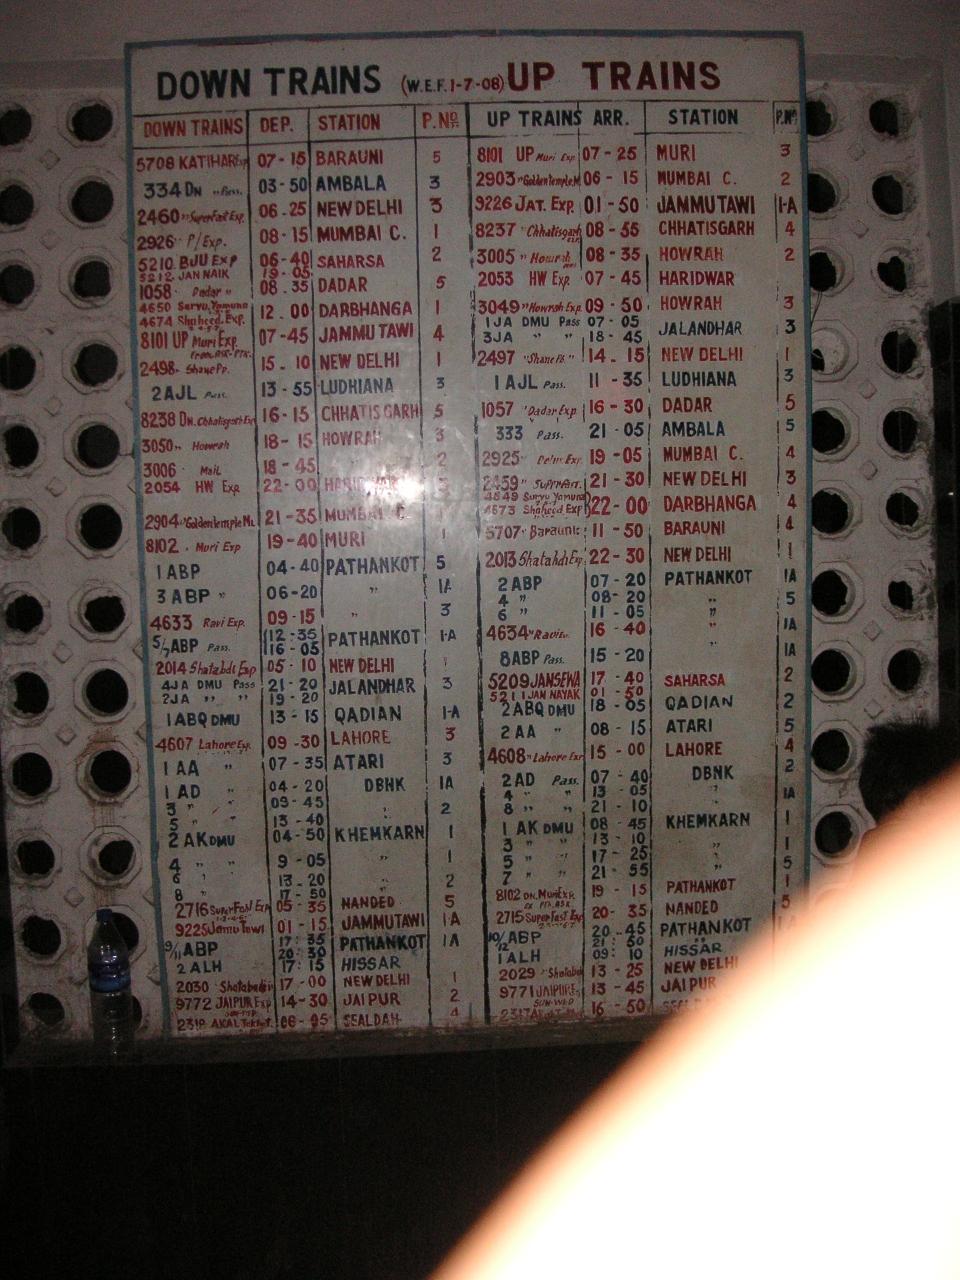 DOWN TRAINS (W.E.F. 1-7-08) UP TRAINS
DOWN TRAINS DEP. STATION P.No. UP TRAINS ARR. STATION P.No.
5708 KATIHAR Exp 07-15 BARAUNI 5 8101 UP Muri Exp 07-25 MURI 3
334 DN " Pass. 03-50 AMBALA 3 2903 " Golden Temple M 06-15 MUMBAI C. 2
2460 " Super Fast Exp. 06.25 NEW DELHI 3 9226 JAT. Exp. 01-50 JAMMUTAWI 1-A
2926 " P/Exp. 08-15 MUMBAI C. 1 8237 " Chhatisgarh 08-55 CHHATISGARH 4
5210 BJU Exp 06-40 SAHARSA 2 3005 " Howrah 08-35 HOWRAH 2
5212 JAN NAIK 19-05
1058 Dadar " 08.35 DADAR 5 2053 HW Exp 07-45 HARIDWAR
4650 Saryu, Yamuna 12.00 DARBHANGA 1 3049 " Howrah Exp. 09-50 HOWRAH 3
4674 Shaheed Exp. 1JA DMU Pass 07-05 JALANDHAR 3
8101 UP Muri Exp 07-45 JAMMU TAWI 4 3JA " " 18-45
2498 " Shane Pb. 15.10 NEW DELHI 1 2497 " Shane Pb " 14.15 NEW DELHI 1
2 AJL Pass. 13-55 LUDHIANA 3 1 AJL Pass. 11-35 LUDHIANA 3
8238 DN. Chhatisgarh Exp 16-15 CHHATISGARH 5 1057 " Dadar Exp 16-30 DADAR 5
3050 " Howrah 18-15 HOWRAH 3 333 Pass. 21-05 AMBALA 5
3006 MAIL 18-45 2 2925 19-05 MUMBAI C. 4
2054 HW Exp 22-00 HARIDWAR 2459 " Superfast. 21-30 NEW DELHI 3
4649 Saryu Yamuna 22-00 DARBHANGA 4
4673 Shaheed Exp
2904 " Golden Temple ML 21-35 MUMBAI C. 5707 " Baraunic 11-50 BARAUNI 4
8102 . Muri Exp 19-40 MURI 1 2013 Shatabdi Exp 22-30 NEW DELHI 1
1 ABP 04-40 PATHANKOT 5 2 ABP 07-20 PATHANKOT 1A
3 ABP " 06-20 " 1A 4 " 08-20 " 5
4633 Ravi Exp. 09-15 " 3 6 " 11-05 "
5/7 ABP Pass. 12-35 PATHANKOT 1-A 4634 " Ravi 16-40 " 1A
16-05 8 ABP Pass. 15-20 " 1A
2014 Shatabdi Exp 05-10 NEW DELHI 1 5209 JANSEWA 17-40 SAHARSA 2
4JA DMU Pass 21-20 JALANDHAR 3 5211 JAN NAYAK 01-50
2JA " " 19-20 2ABQ DMU 18-05 QADIAN 2
1ABQ DMU 13-15 QADIAN 1-A 2 AA " 08-15 ATARI 5
4607 Lahore Exp. 09-30 LAHORE 3 4608 " Lahore Exp 15-00 LAHORE 4
1 AA " 07-35 ATARI 3 2 AD Pass. 07-40 DBNK 2
1 AD " 04-20 DBNK 1A 4 " " 13-05 " 1A
3 " " 09-45 8 " " 21-10
5 " " 13-40 2
2 AK DMU 04-50 KHEMKARN 1 1 AK DMU 08-45 KHEMKARN 1
4 " " 9-05 " 1 3 " " 13-10 " 1
6 " " 13-20 2 5 " " 17-25 " 5
8 " 17-50 7 " " 21-55
2716 Super Fast Exp 05-35 NANDED 5 8102 DN. Muri Exp. 19-15 PATHANKOT 1
9225 Jamu Tawi 01-15 JAMMUTAWI 1A 2715 Super Fast Exp 20-35 NANDED 5
9/11 ABP 17:35 PATHANKOT 1A 10/12 ABP 20-45 PATHANKOT
20:30 21:50
2 ALH 17:15 HISSAR 1 ALH 09:10 HISSAR
2030 Shatabdi 17-00 NEW DELHI 1 2029 " Shatabdi 13-25 NEW DELHI
9772 JAIPUR Exp 14-30 JAIPUR 2 9771 JAIPUR 13-45 JAIPUR
SUN-WED
2318 AKAL Takhat 06-05 SEALDAH 4 2317 16-50 SEALDAH